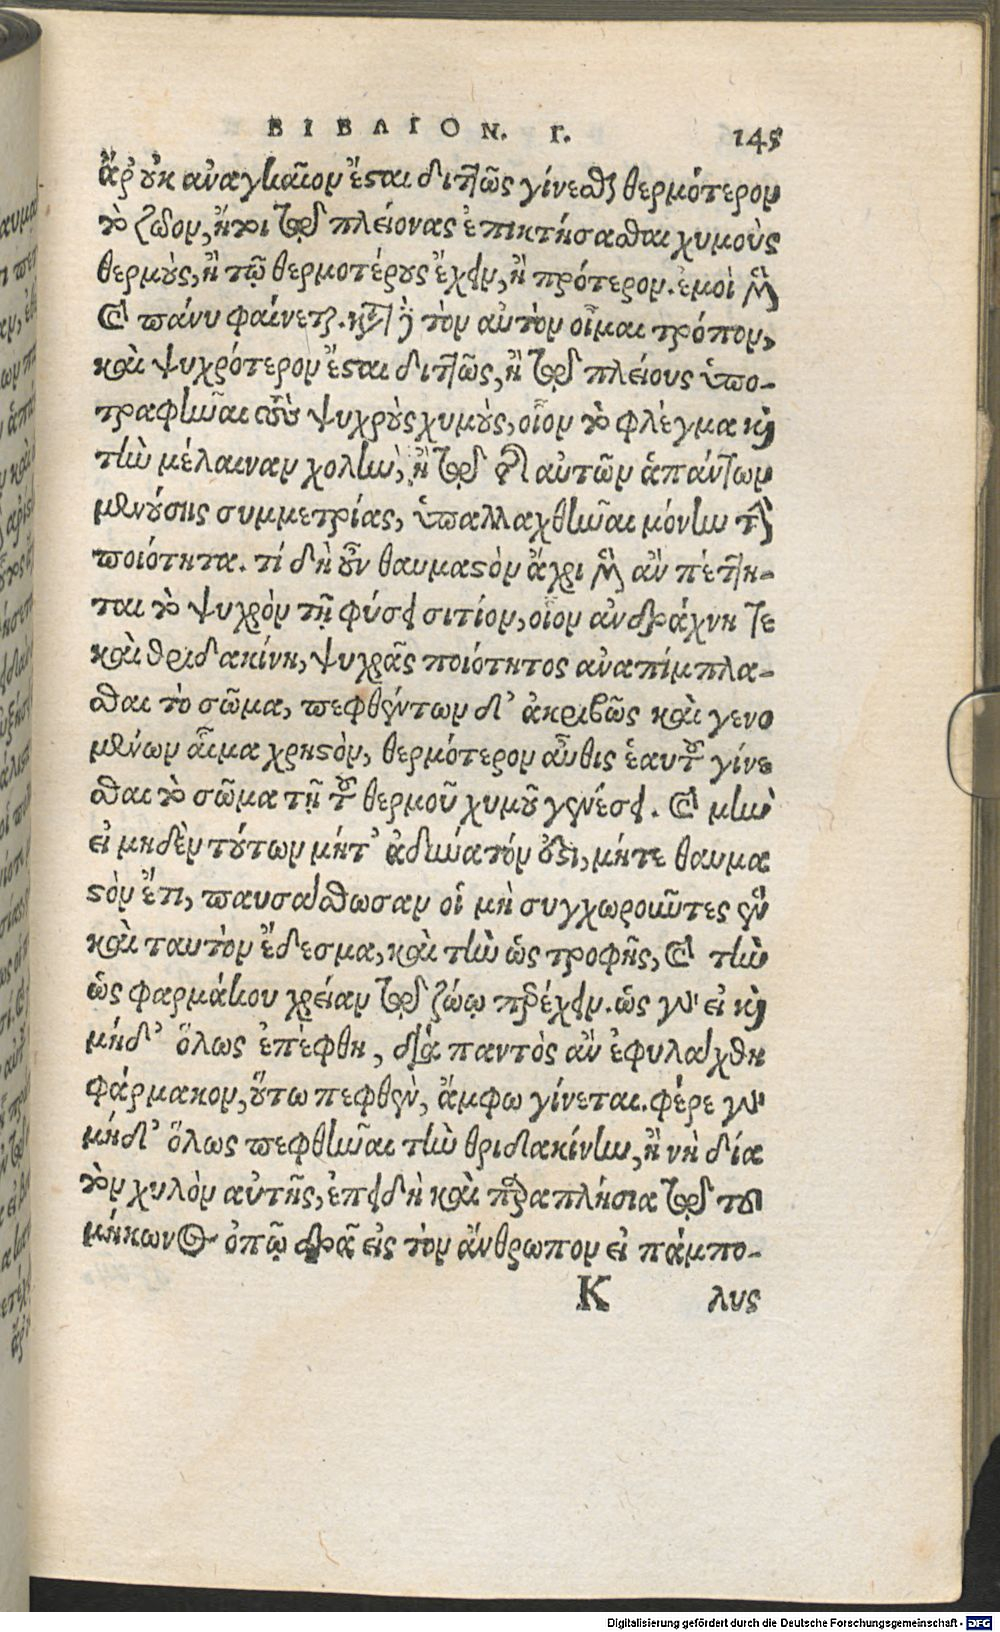 ΒΙΒΛΙΟΝ. Γ. 145
ἆρ' οὐκ ἀναγκαῖον ἔσται διττῶς γίνεσθαι θερμότερον
τὸ ζῶον, ἤτοι τῷ πλείονας ἐπικτήσασθαι χυμοὺς
θερμοὺς, ἢ τῷ θερμοτέρους ἔχειν, ἢ πρότερον. ἐμοὶ μὲν
καὶ πάνυ φαίνεται. κατὰ δὲ τὸν αὐτὸν οἶμαι τρόπον,
καὶ ψυχρότερον ἔσται διττῶς, ἢ τῷ πλείους ὑπο-
τραφῆναι τοὺς ψυχροὺς χυμοὺς, οἷον τὸ φλέγμα καὶ
τὴν μέλαιναν χολὴν, ἢ τῷ τῆς αὐτῶν ἁπάντων
μενούσης συμμετρίας, ὑπαλλαχθῆναι μόνην τὴν
ποιότητα. τί δὴ οὖν θαυμαστὸν ἄχρι μὲν ἂν πέττη-
ται τὸ ψυχρὸν τῇ φύσει σιτίον, οἷον ἀνδράχνη τε
καὶ θριδακίνη, ψυχρᾶς ποιότητος ἀναπίμπλα-
σθαι τὸ σῶμα, πεφθέντων δ' ἀκριβῶς καὶ γενο
μένων αἷμα χρηστὸν, θερμότερον αὖθις ἑαυτοῦ γίνε
σθαι τὸ σῶμα τῇ τοῦ θερμοῦ χυμοῦ γενέσει. καὶ μὴν
εἰ μηδὲν τούτων μήτ' ἀδύνατόν ἐστι, μήτε θαυμα
στὸν ἔτι, παυσάσθωσαν οἱ μὴ συγχωροῦντες ἓν
καὶ ταυτὸν ἔδεσμα, καὶ τὴν ὡς τροφῆς, καὶ τὴν
ὡς φαρμάκου χρείαν τῷ ζώῳ παρέχειν. ὡς γὰρ εἰ καὶ
μήδ' ὅλως ἐπέφθη, διὰ παντὸς ἂν ἐφυλάχθη
φάρμακον, οὕτω πεφθὲν, ἄμφω γίνεται. φέρε γὰρ
μήδ' ὅλως πεφθῆναι τὴν θριδακίνην, ἢ νὴ δία
τὸν χυλὸν αὐτῆς, ἐπειδὴ καὶ παραπλήσια τῷ τοῦ
μήκωνος ὀπῷ δρᾷ εἰς τὸν ἄνθρωπον εἰ πάμπο-
K λυς
Digitalisierung gefördert durch die Deutsche Forschungsgemeinschaft - DFG